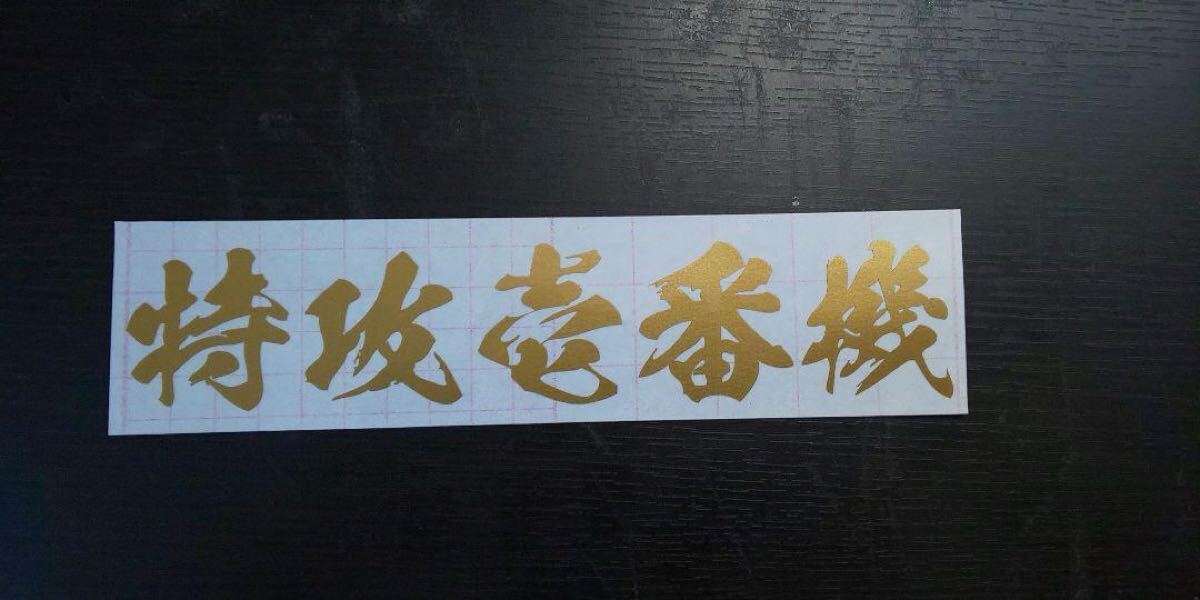 特攻壱番機